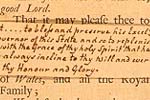 good Lord.
That it may please thee to
. . . . to bless and preserve his Excel
overnor of this State and so to replenish
with the Grace of thy holy Spirit that he
always incline to thy will and over
thy Honour and Glory.
of Wales, and all the Royal
Family;